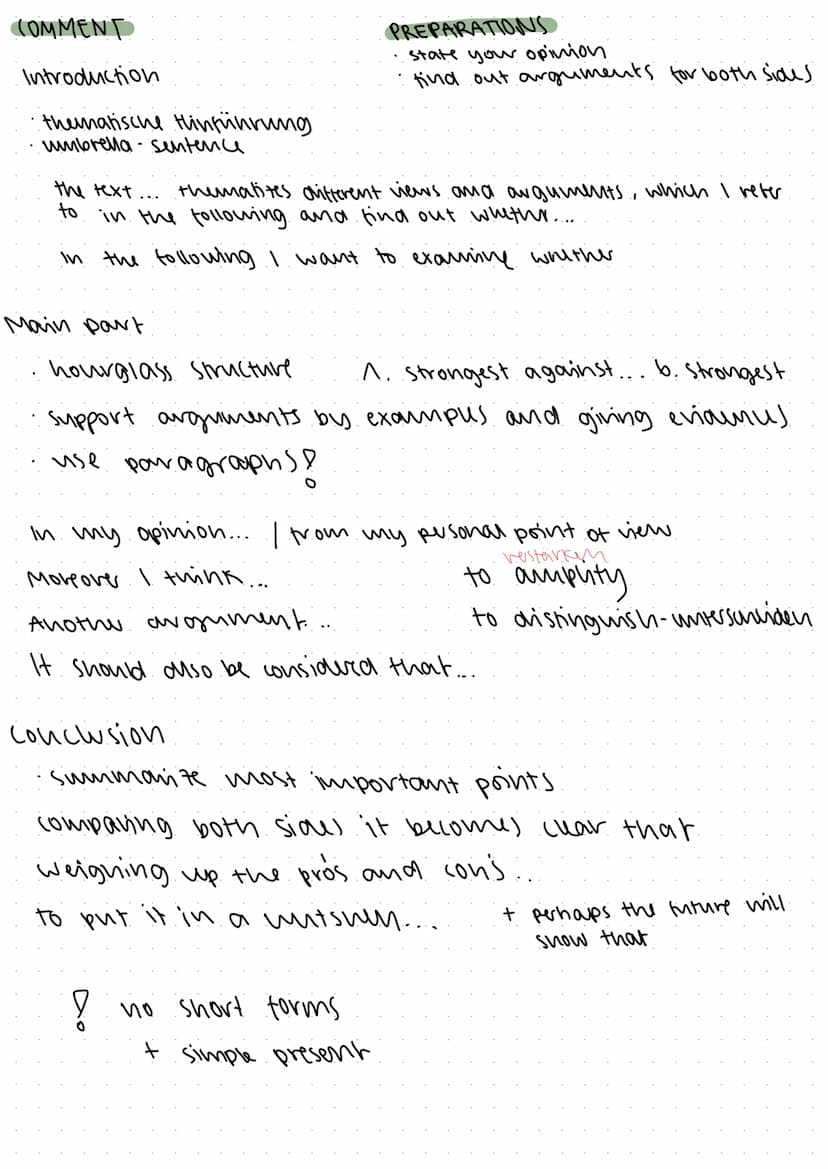 COMMENT
PREPARATIONS
· state your opinion
· find out arguments for both sides
Introduction
· thematische Hinführung
· umbrella-sentence
the text... thematizes different views and arguments, which I refer
to in the following and find out whether...
In the following I want to examine whether
Main part
· hourglass structure 1. strongest against... 6. strongest
· support arguments by examples and giving evidences
· use paragraphs!
In my opinion... / from my personal point of view
verstärken
Moreover I think... to amplify
Another argument... to distinguish - unterscheiden
It should also be considered that...
Conclusion
· summarize most important points
comparing both sides it becomes clear that
weighing up the pro's and con's..
to put it in a nutshell... + perhaps the future will
show that
! no short forms
+ simple present